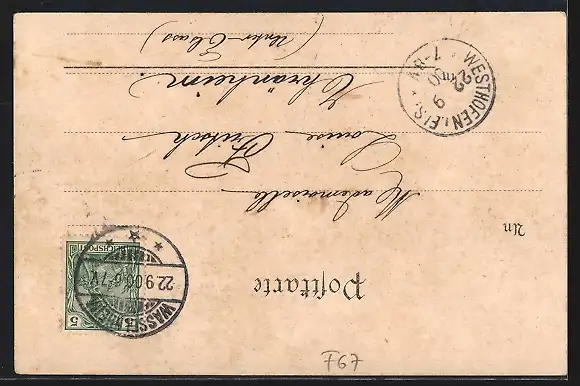 Postkarte
An
Mademoiselle
Louise Fritsch
Thränheim
(Unter-Elsass)
WASSELNHEIM
22.9.00.6-7.V.
REICHSPOST
5 5
WESTHOFEN i. ELS.
22 9 00
7-8 V
F67